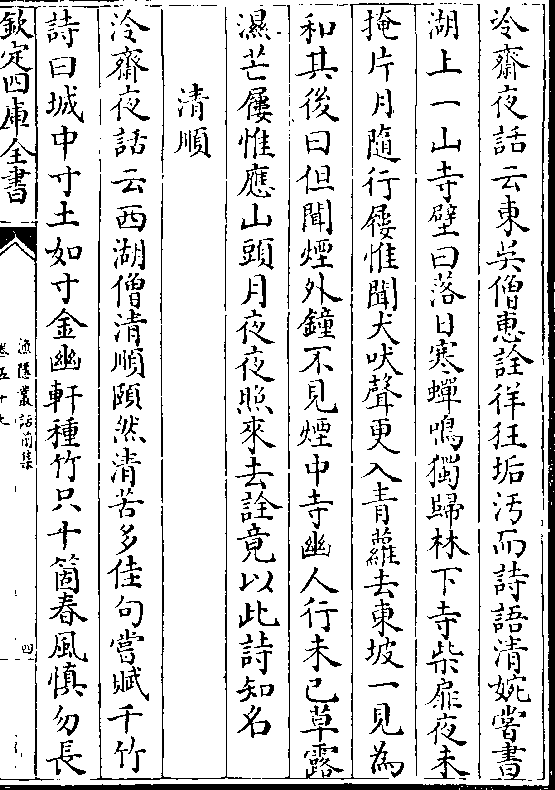 冷齋夜話云東吳僧恵詮徉狂垢汚而詩語清婉嘗書
湖上一山寺壁曰落日寒蟬鳴獨歸林下寺柴扉夜未
掩片月隨行屨惟聞犬吠聲更入青蘿去東坡一見為
和其後曰但聞煙外鐘不見煙中寺幽人行未已草露
濕芒屨惟應山頭月夜夜照來去詮竟以此詩知名
清順
泠齋夜話云西湖僧清順頤然清苦多佳句嘗賦千竹
詩曰城中寸土如寸金幽軒種竹只十箇春風慎勿長
欽定四庫全書
漁隱叢話前集
卷五十七
四